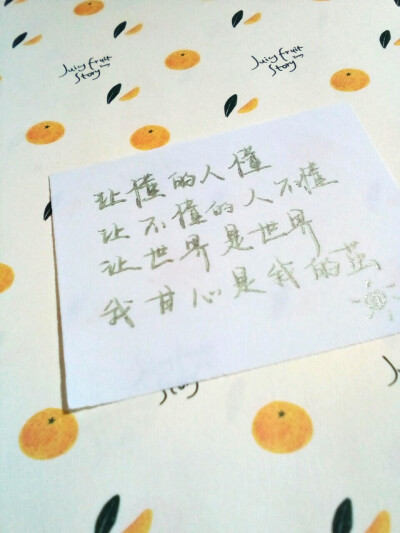 Juicy fruit
Story
Juicy fruit
Story
让懂的人懂
让不懂的人不懂
让世界是世界
我甘心是我的茧